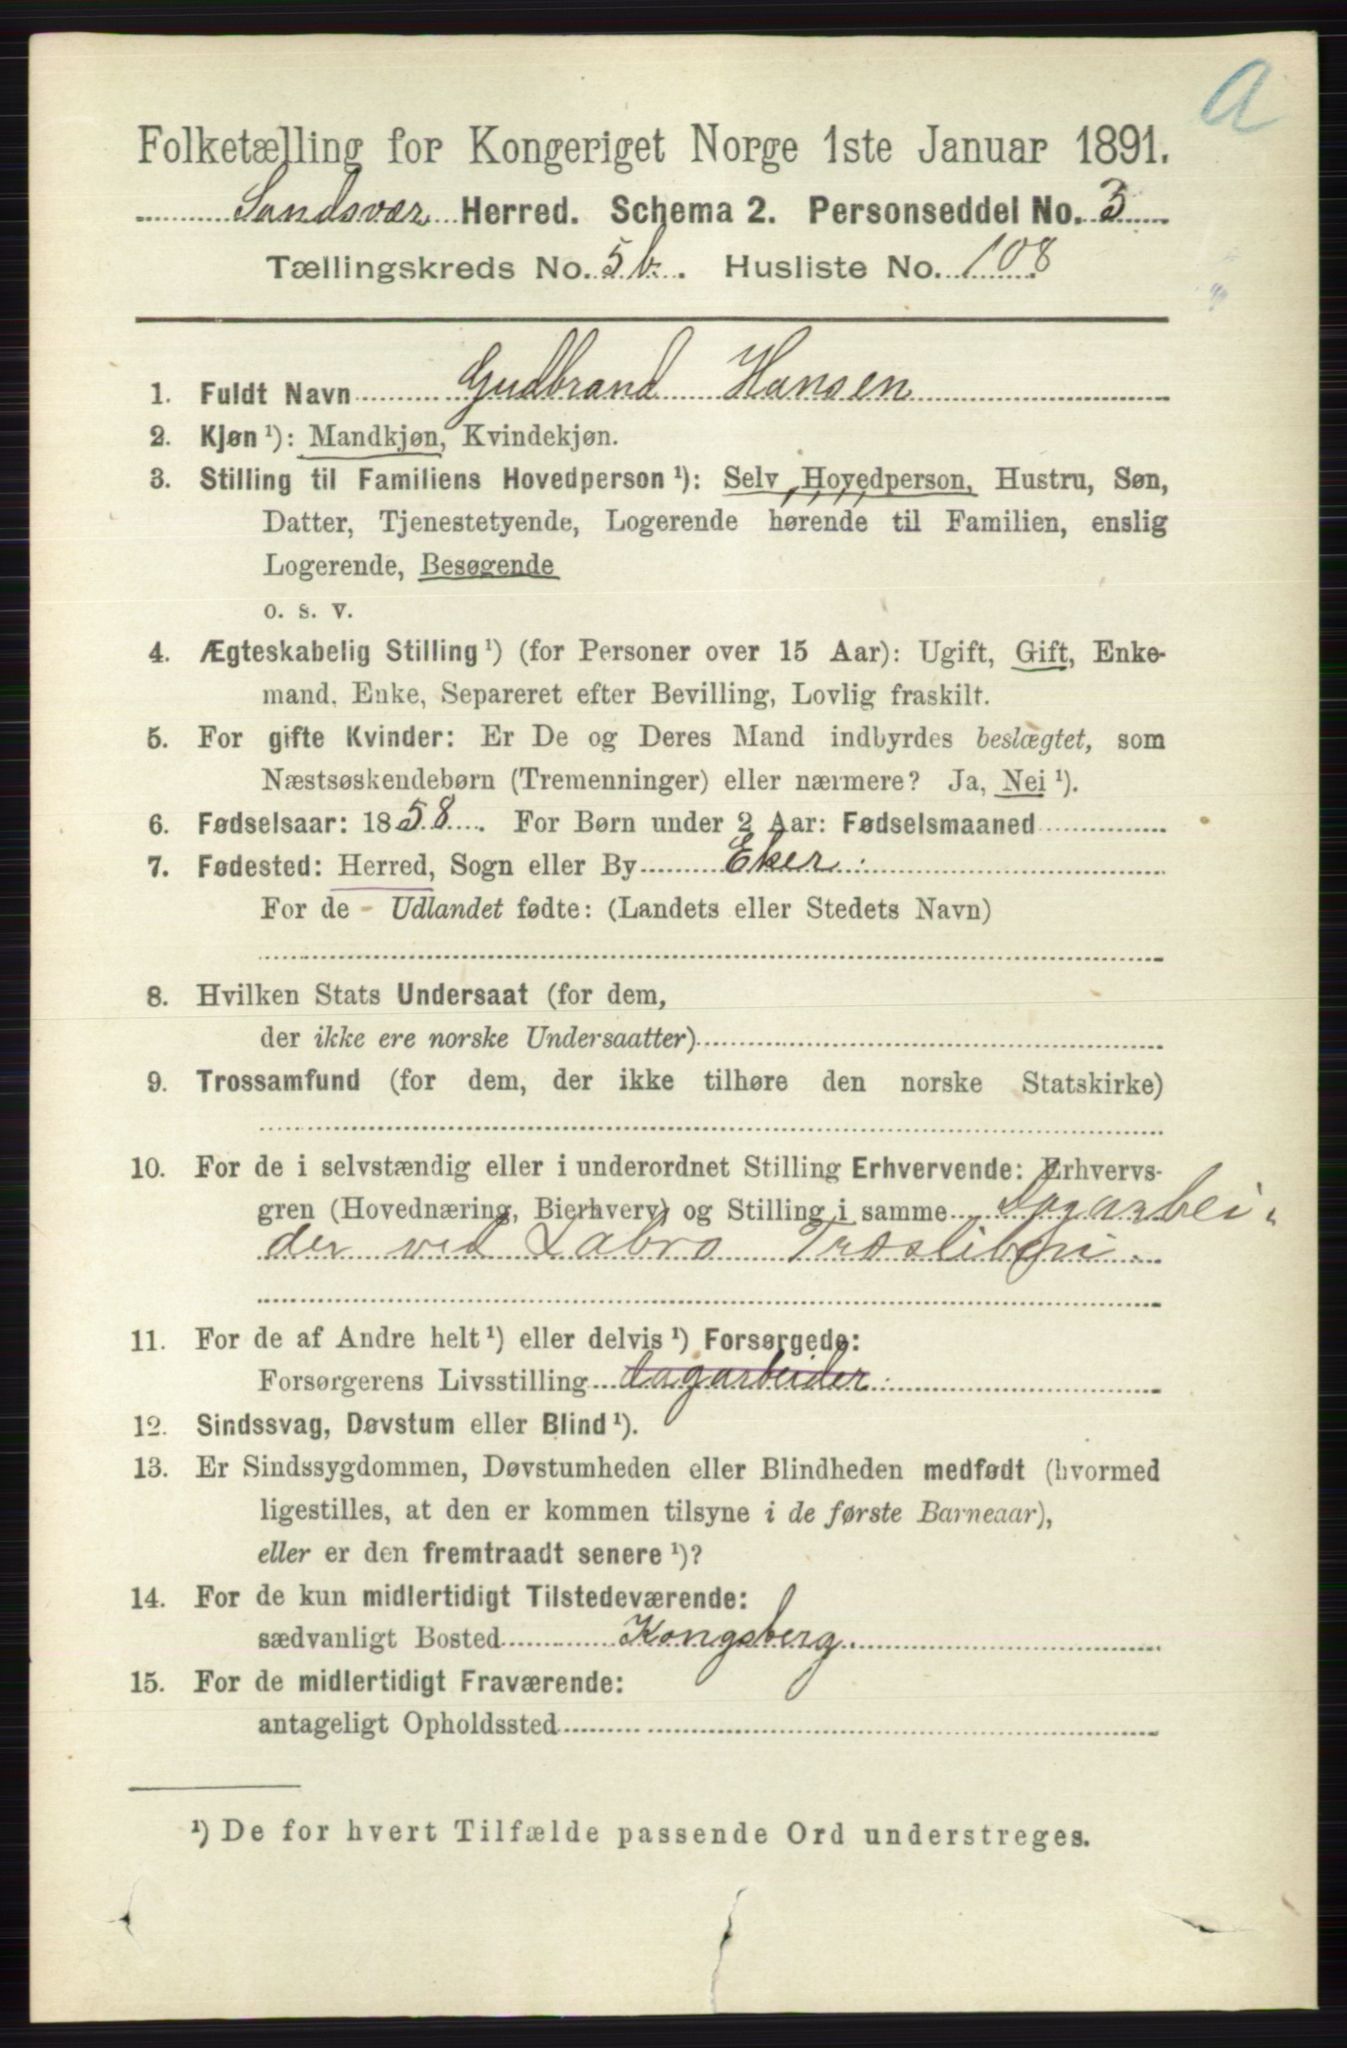 a
Folketælling for Kongeriget Norge 1ste Januar 1891.
Sandsvær Herred. Schema 2. Personseddel No. 3
Tællingskreds No. 5 b. Husliste No. 108
1. Fuldt Navn Gudbrand Hansen
2. Kjøn ¹): Mandkjøn, Kvindekjøn.
3. Stilling til Familiens Hovedperson ¹): Selv Hovedperson, Hustru, Søn,
Datter, Tjenestetyende, Logerende hørende til Familien, enslig
Logerende, Besøgende
o. s. v.
4. Ægteskabelig Stilling ¹) (for Personer over 15 Aar): Ugift, Gift, Enke-
mand, Enke, Separeret efter Bevilling, Lovlig fraskilt.
5. For gifte Kvinder: Er De og Deres Mand indbyrdes beslægtet, som
Næstsøskendebørn (Tremenninger) eller nærmere? Ja, Nei ¹).
6. Fødselsaar: 1858. For Børn under 2 Aar: Fødselsmaaned
7. Fødested: Herred, Sogn eller By Eker
For de - Udlandet fødte: (Landets eller Stedets Navn)
8. Hvilken Stats Undersaat (for dem,
der ikke ere norske Undersaatter)
9. Trossamfund (for dem, der ikke tilhøre den norske Statskirke)
10. For de i selvstændig eller i underordnet Stilling Erhvervende: Erhvervs-
gren (Hovednæring, Bierhverv) og Stilling i samme Dagarbei-
der ved Labro Træsliberi.
11. For de af Andre helt ¹) eller delvis ¹) Forsørgede:
Forsørgerens Livsstilling dagarbeider
12. Sindssvag, Døvstum eller Blind ¹).
13. Er Sindssygdommen, Døvstumheden eller Blindheden medfødt (hvormed
ligestilles, at den er kommen tilsyne i de første Barneaar),
eller er den fremtraadt senere ¹)?
14. For de kun midlertidigt Tilstedeværende:
sædvanligt Bosted Kongsberg
15. For de midlertidigt Fraværende:
antageligt Opholdssted
¹) De for hvert Tilfælde passende Ord understreges.